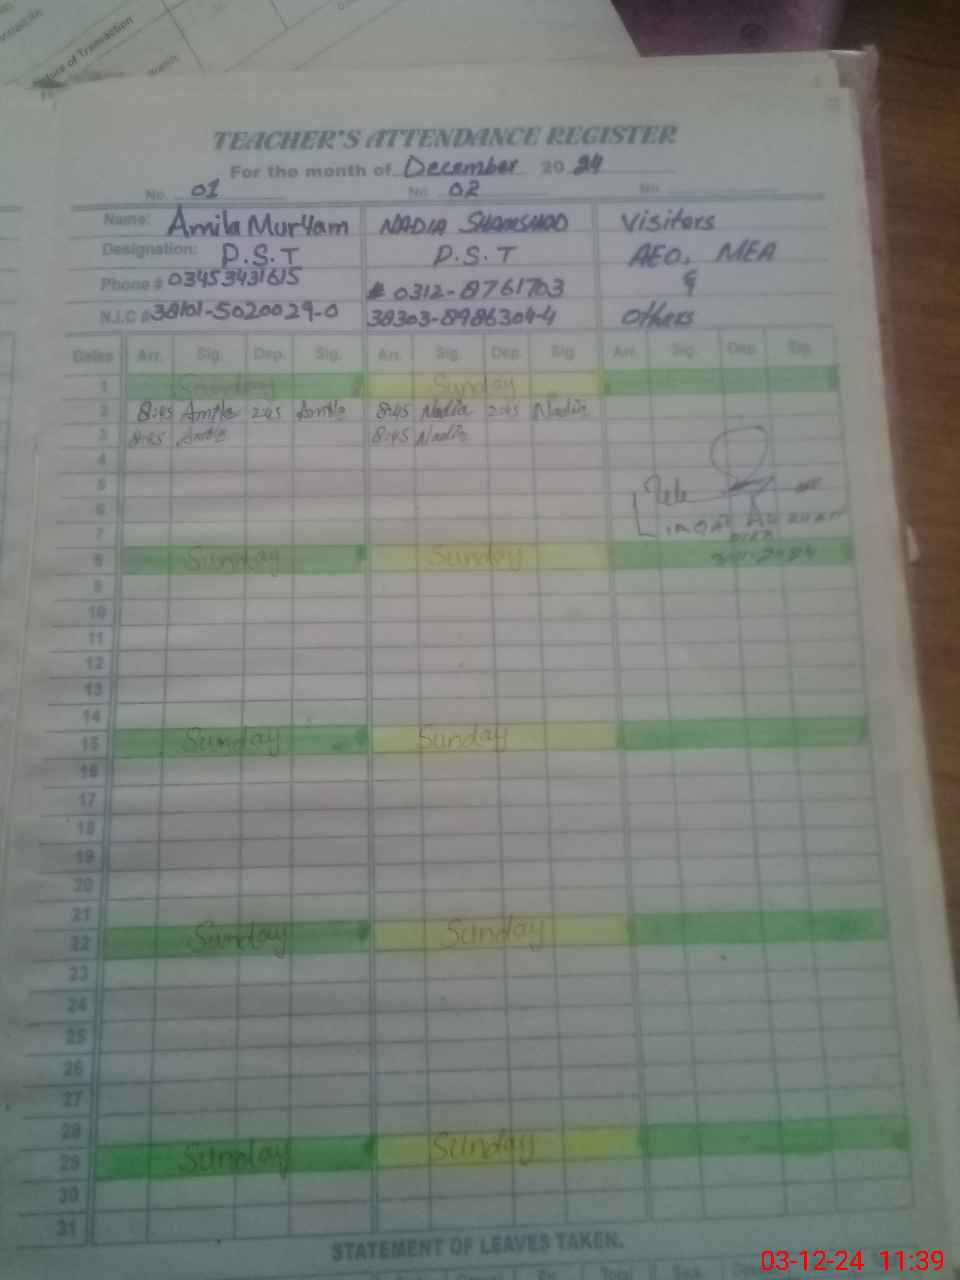 Nature of Transaction
TEACHER'S ATTENDANCE REGISTER
For the month of December 2024
No. 01 No. 02 No.
Name: Amila Muryam NADIA SHAMSHAD Visitors
Designation: P.S.T P.S.T AEO, MEA
Phone # 03453431615 # 0312-8761703 &
N.I.C # 38101-5020029-0 38303-8986304-4 others
Dates Arr. Sig. Dep. Sig. Arr. Sig. Dep. Sig. Arr. Sig. Dep. Sig.
1 Sunday Sunday
2 8:45 Amila 2:45 Amila 8:45 Nadia 2:45 Nadia
3 8:45 Amila 8:45 Nadia
4
5
6
7
8 Sunday Sunday
9
10
11
12
13
14
15 Sunday Sunday
16
17
18
19
20
21
22 Sunday Sunday
23
24
25
26
27
28
29 Sunday Sunday
30
31
STATEMENT OF LEAVES TAKEN.
03-12-24 11:39